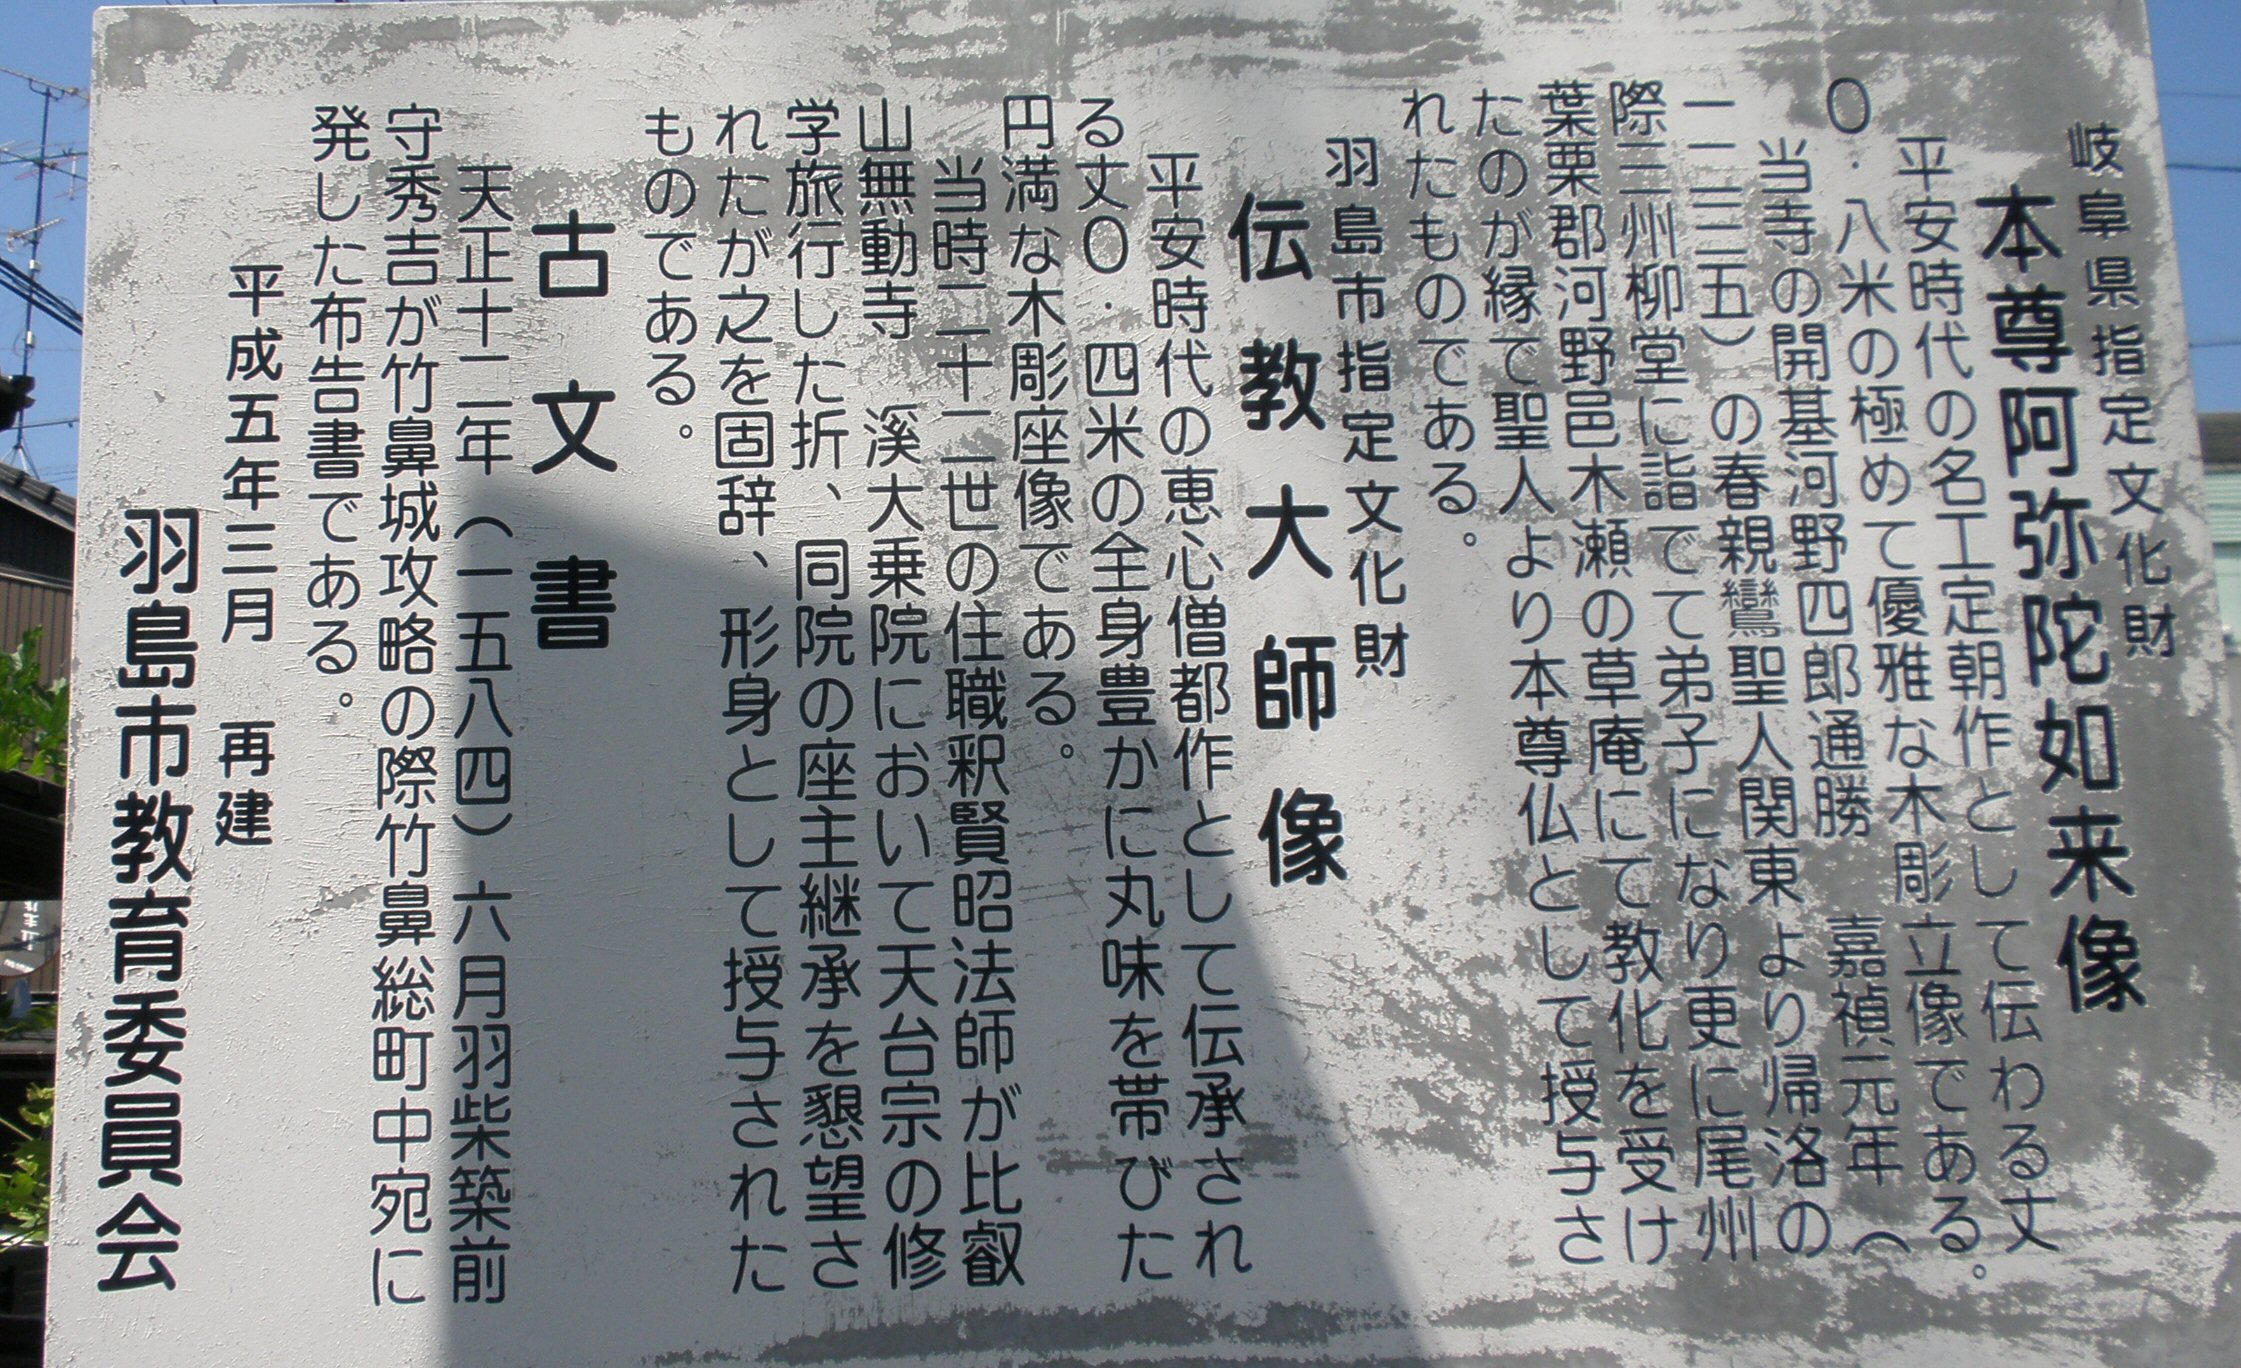 岐阜県指定文化財
本尊阿弥陀如来像
平安時代の名工定朝作として伝わる丈
〇・八米の極めて優雅な木彫立像である。
当寺の開基河野四郎通勝 嘉禎元年（
一二三五）の春親鸞聖人関東より帰洛の
際三州柳堂に詣でて弟子になり更に尾州
葉栗郡河野邑木瀬の草庵にて教化を受け
たのが縁で聖人より本尊仏として授与さ
れたものである。
羽島市指定文化財
伝教大師像
平安時代の恵心僧都作として伝承され
る丈〇・四米の全身豊かに丸味を帯びた
円満な木彫座像である。
当時二十二世の住職釈賢昭法師が比叡
山無動寺 溪大乗院において天台宗の修
学旅行した折、同院の座主継承を懇望さ
れたが之を固辞、形身として授与された
ものである。
古文書
天正十二年（一五八四）六月羽柴築前
守秀吉が竹鼻城攻略の際竹鼻総町中宛に
発した布告書である。
平成五年三月 再建
羽島市教育委員会